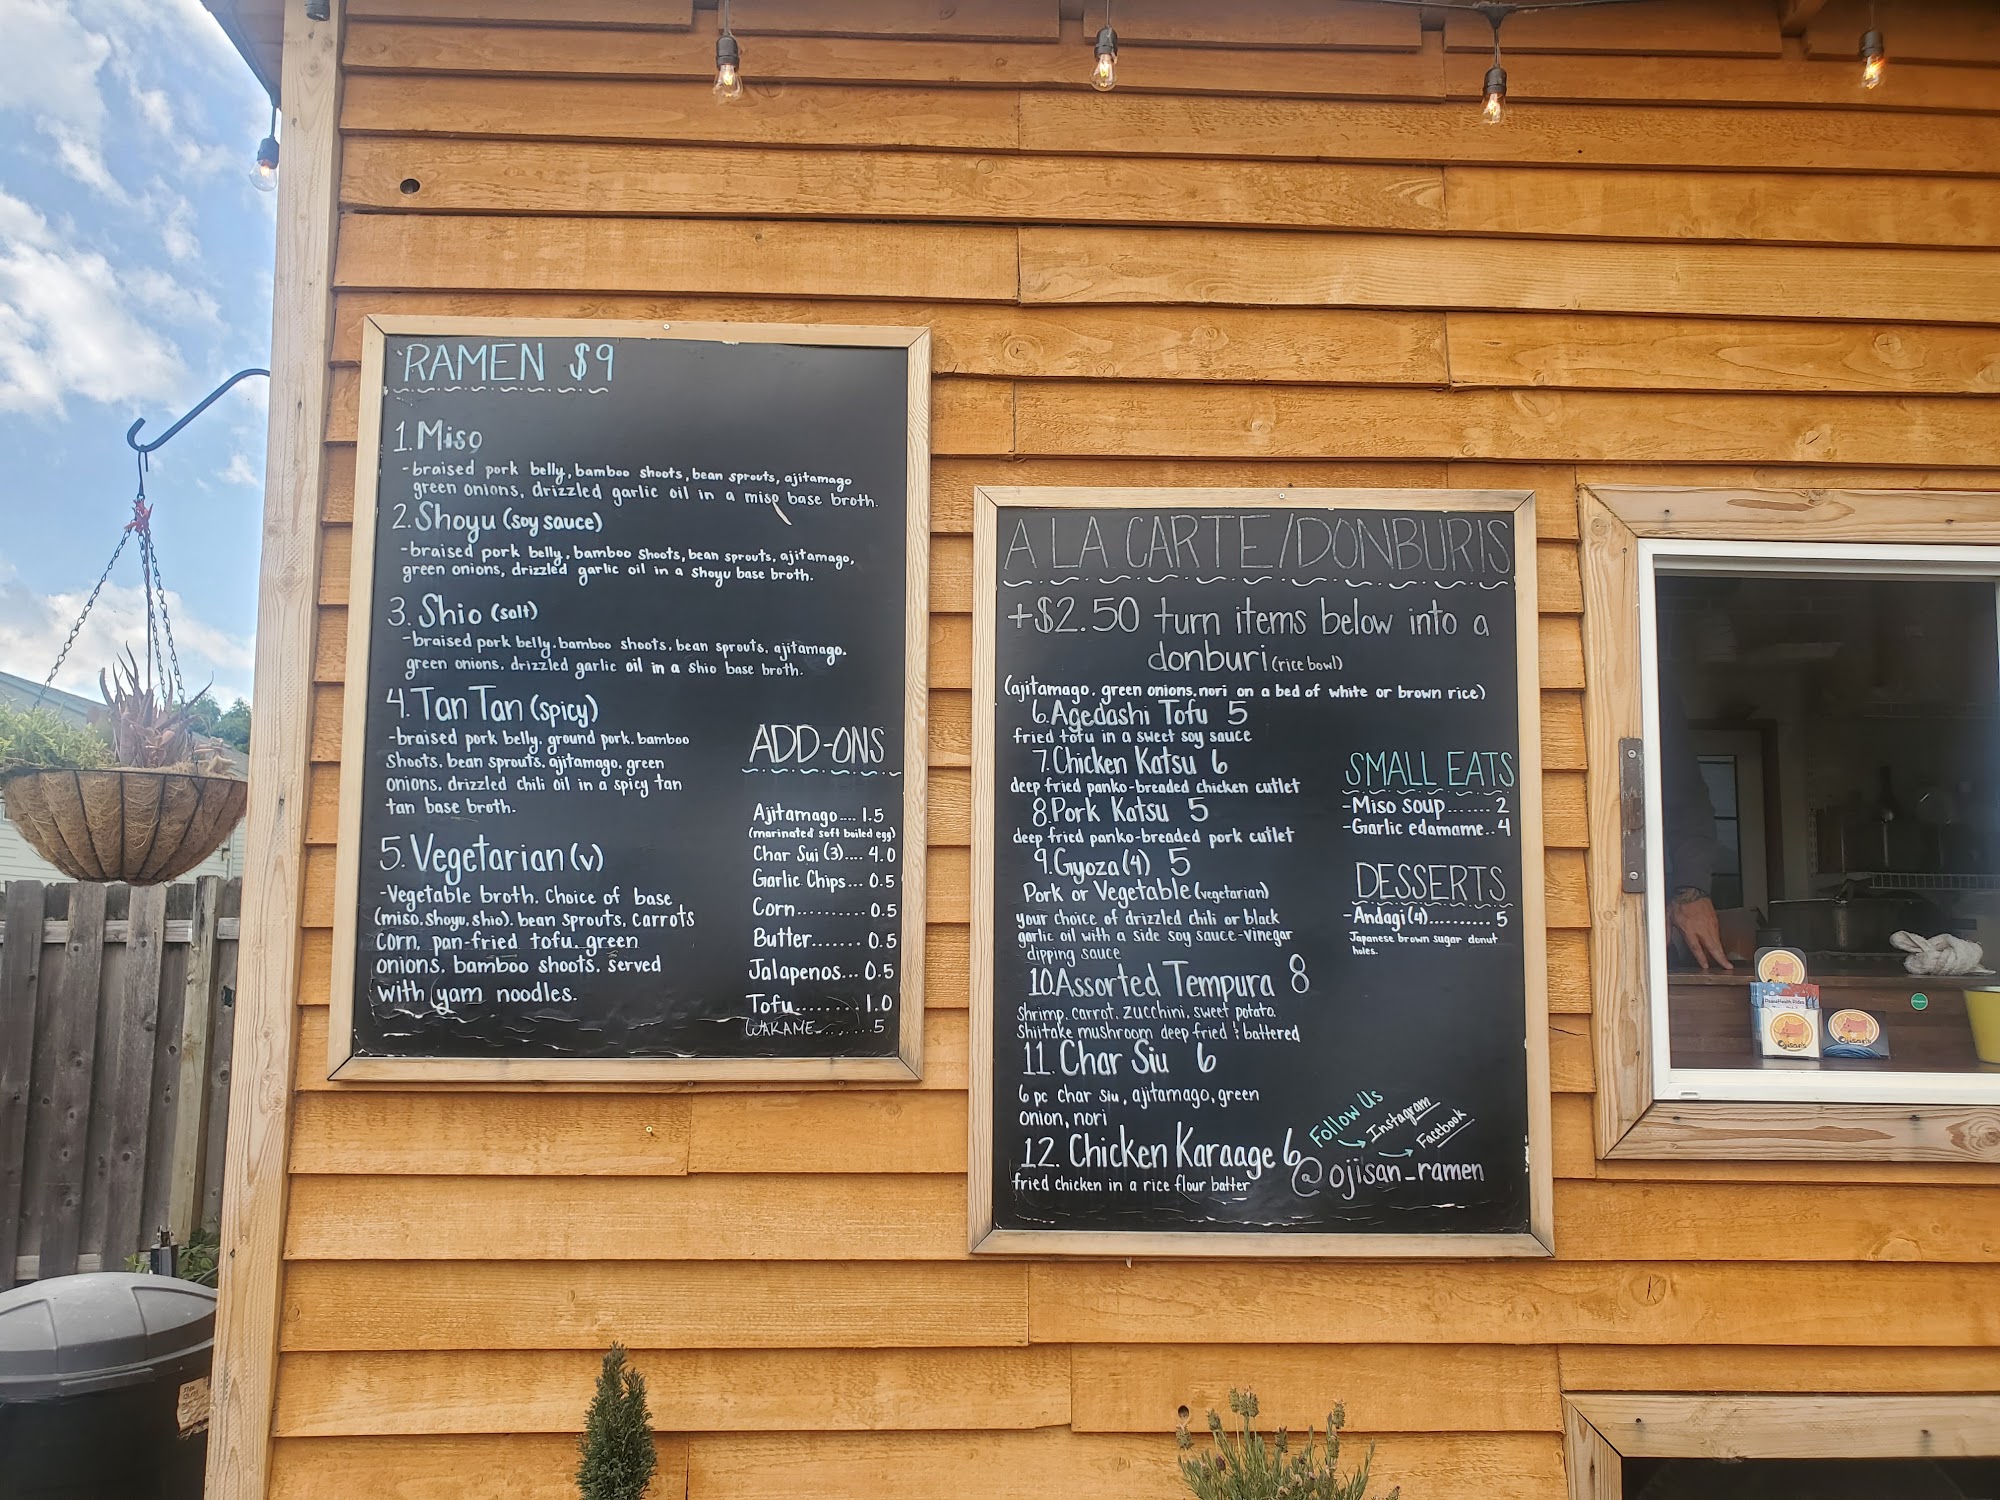 RAMEN $9
1. Miso
-braised pork belly, bamboo shoots, bean sprouts, ajitamago
green onions, drizzled garlic oil in a miso base broth.
2. Shoyu (soy sauce)
-braised pork belly, bamboo shoots, bean sprouts, ajitamago,
green onions, drizzled garlic oil in a shoyu base broth.
3. Shio (salt)
-braised pork belly, bamboo shoots, bean sprouts, ajitamago.
green onions, drizzled garlic oil in a shio base broth.
4. Tan Tan (spicy)
-braised pork belly, ground pork, bamboo
shoots, bean sprouts, ajitamago, green
onions, drizzled chili oil in a spicy tan
tan base broth.
5. Vegetarian (v)
-Vegetable broth. Choice of base
(miso, shoyu, shio), bean sprouts, carrots
corn, pan-fried tofu, green
onions, bamboo shoots. served
with yam noodles.
ADD-ONS
Ajitamago.... 1.5
(marinated soft boiled egg)
Char Sui (3).... 4.0
Garlic Chips... 0.5
Corn.......... 0.5
Butter....... 0.5
Jalapenos... 0.5
Tofu......... 1.0
WAKAME........5
A LA CARTE/DONBURIS
+$2.50 turn items below into a
donburi (rice bowl)
(ajitamago, green onions, nori on a bed of white or brown rice)
6. Agedashi Tofu 5
fried tofu in a sweet soy sauce
7. Chicken Katsu 6
deep fried panko-breaded chicken cutlet
8. Pork Katsu 5
deep fried panko-breaded pork cutlet
9. Gyoza (4) 5
Pork or Vegetable (vegetarian)
your choice of drizzled chili or black
garlic oil with a side soy sauce-vinegar
dipping sauce
10. Assorted Tempura 8
Shrimp, carrot, zucchini, sweet potato,
Shiitake mushroom deep fried & battered
11. Char Siu 6
6 pc char siu, ajitamago, green
onion, nori
12. Chicken Karaage 6
fried chicken in a rice flour batter
SMALL EATS
-Miso soup....... 2
-Garlic edamame.. 4
DESSERTS
-Andagi (4).......... 5
Japanese brown sugar donut
holes.
Follow Us
Instagram
Facebook
@ojisan_ramen
Ojisan's
Ojisan's